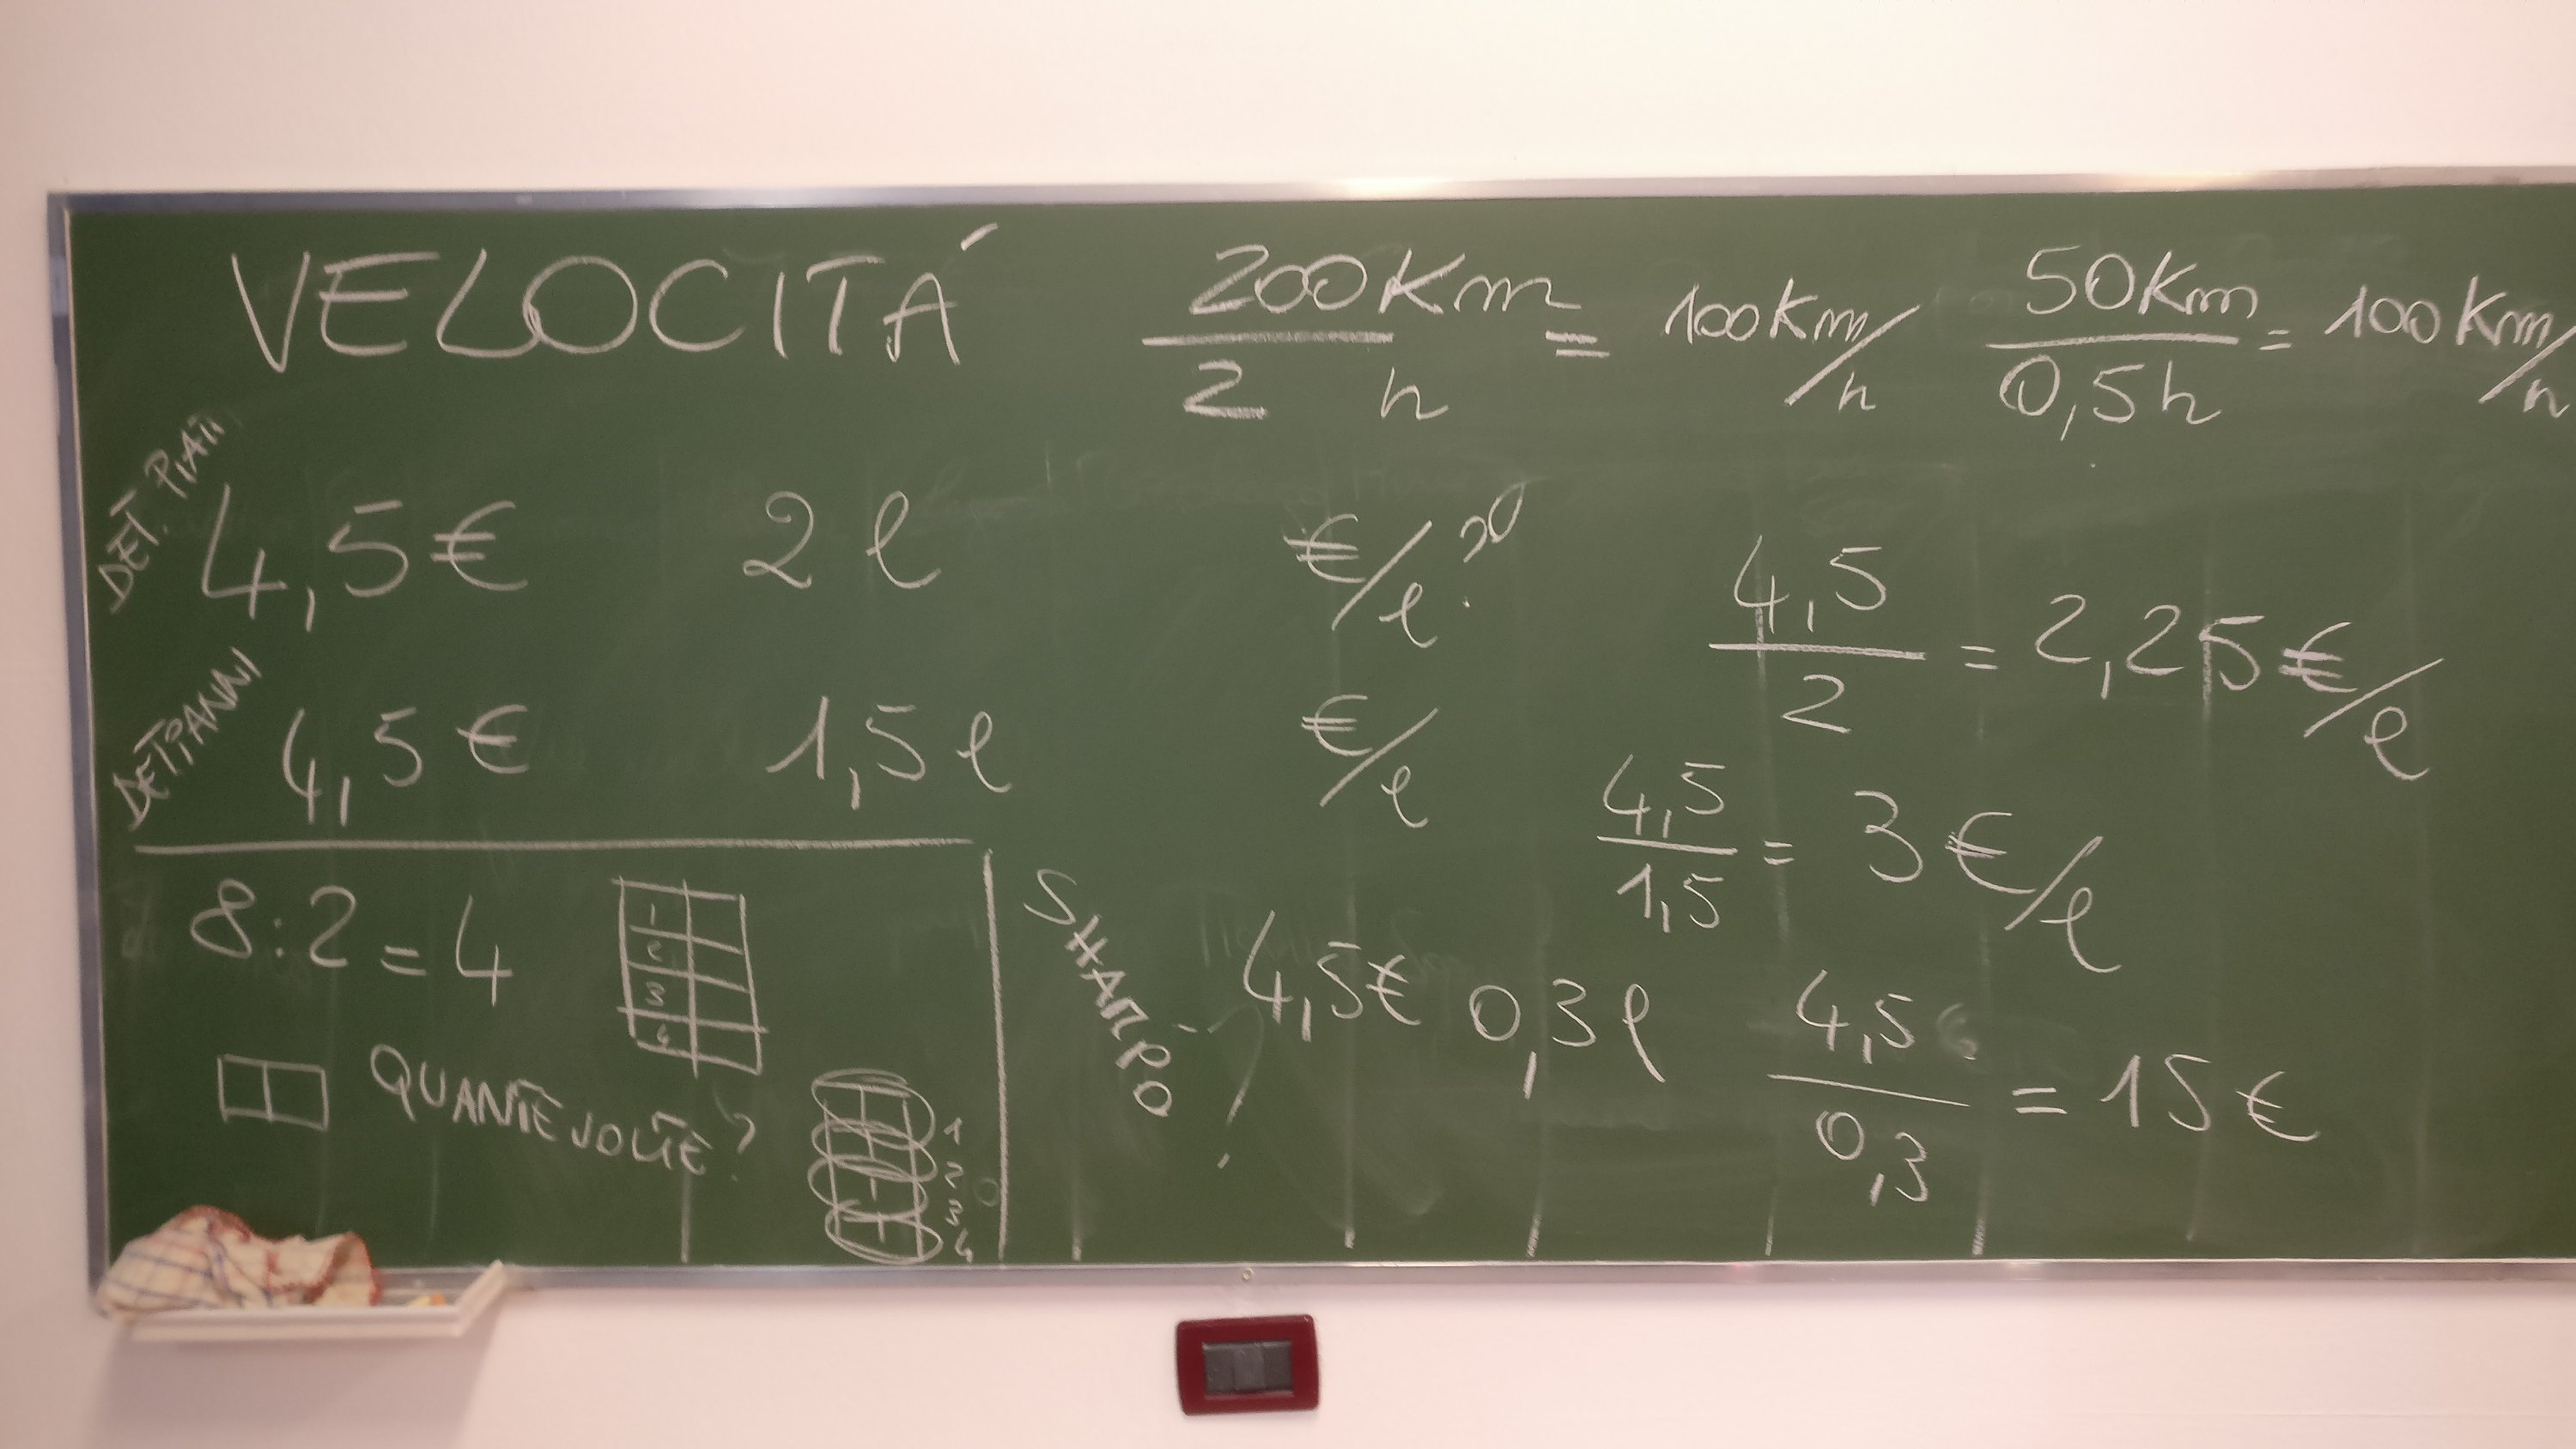 VELOCITÁ 200Km/2 h = 100Km/h 50Km/0,5h = 100Km/h
DET. PIATTI 4,5€ 2 l €/l? 4,5/2 = 2,25€/l
DET PANNI 4,5€ 1,5 l €/l 4,5/1,5 = 3€/l
8:2=4
1
2
3
4
QUANTE VOLTE?
1
2
3
4
SHAMPO 4,5€ 0,3 l 4,5/0,3 = 15€
?